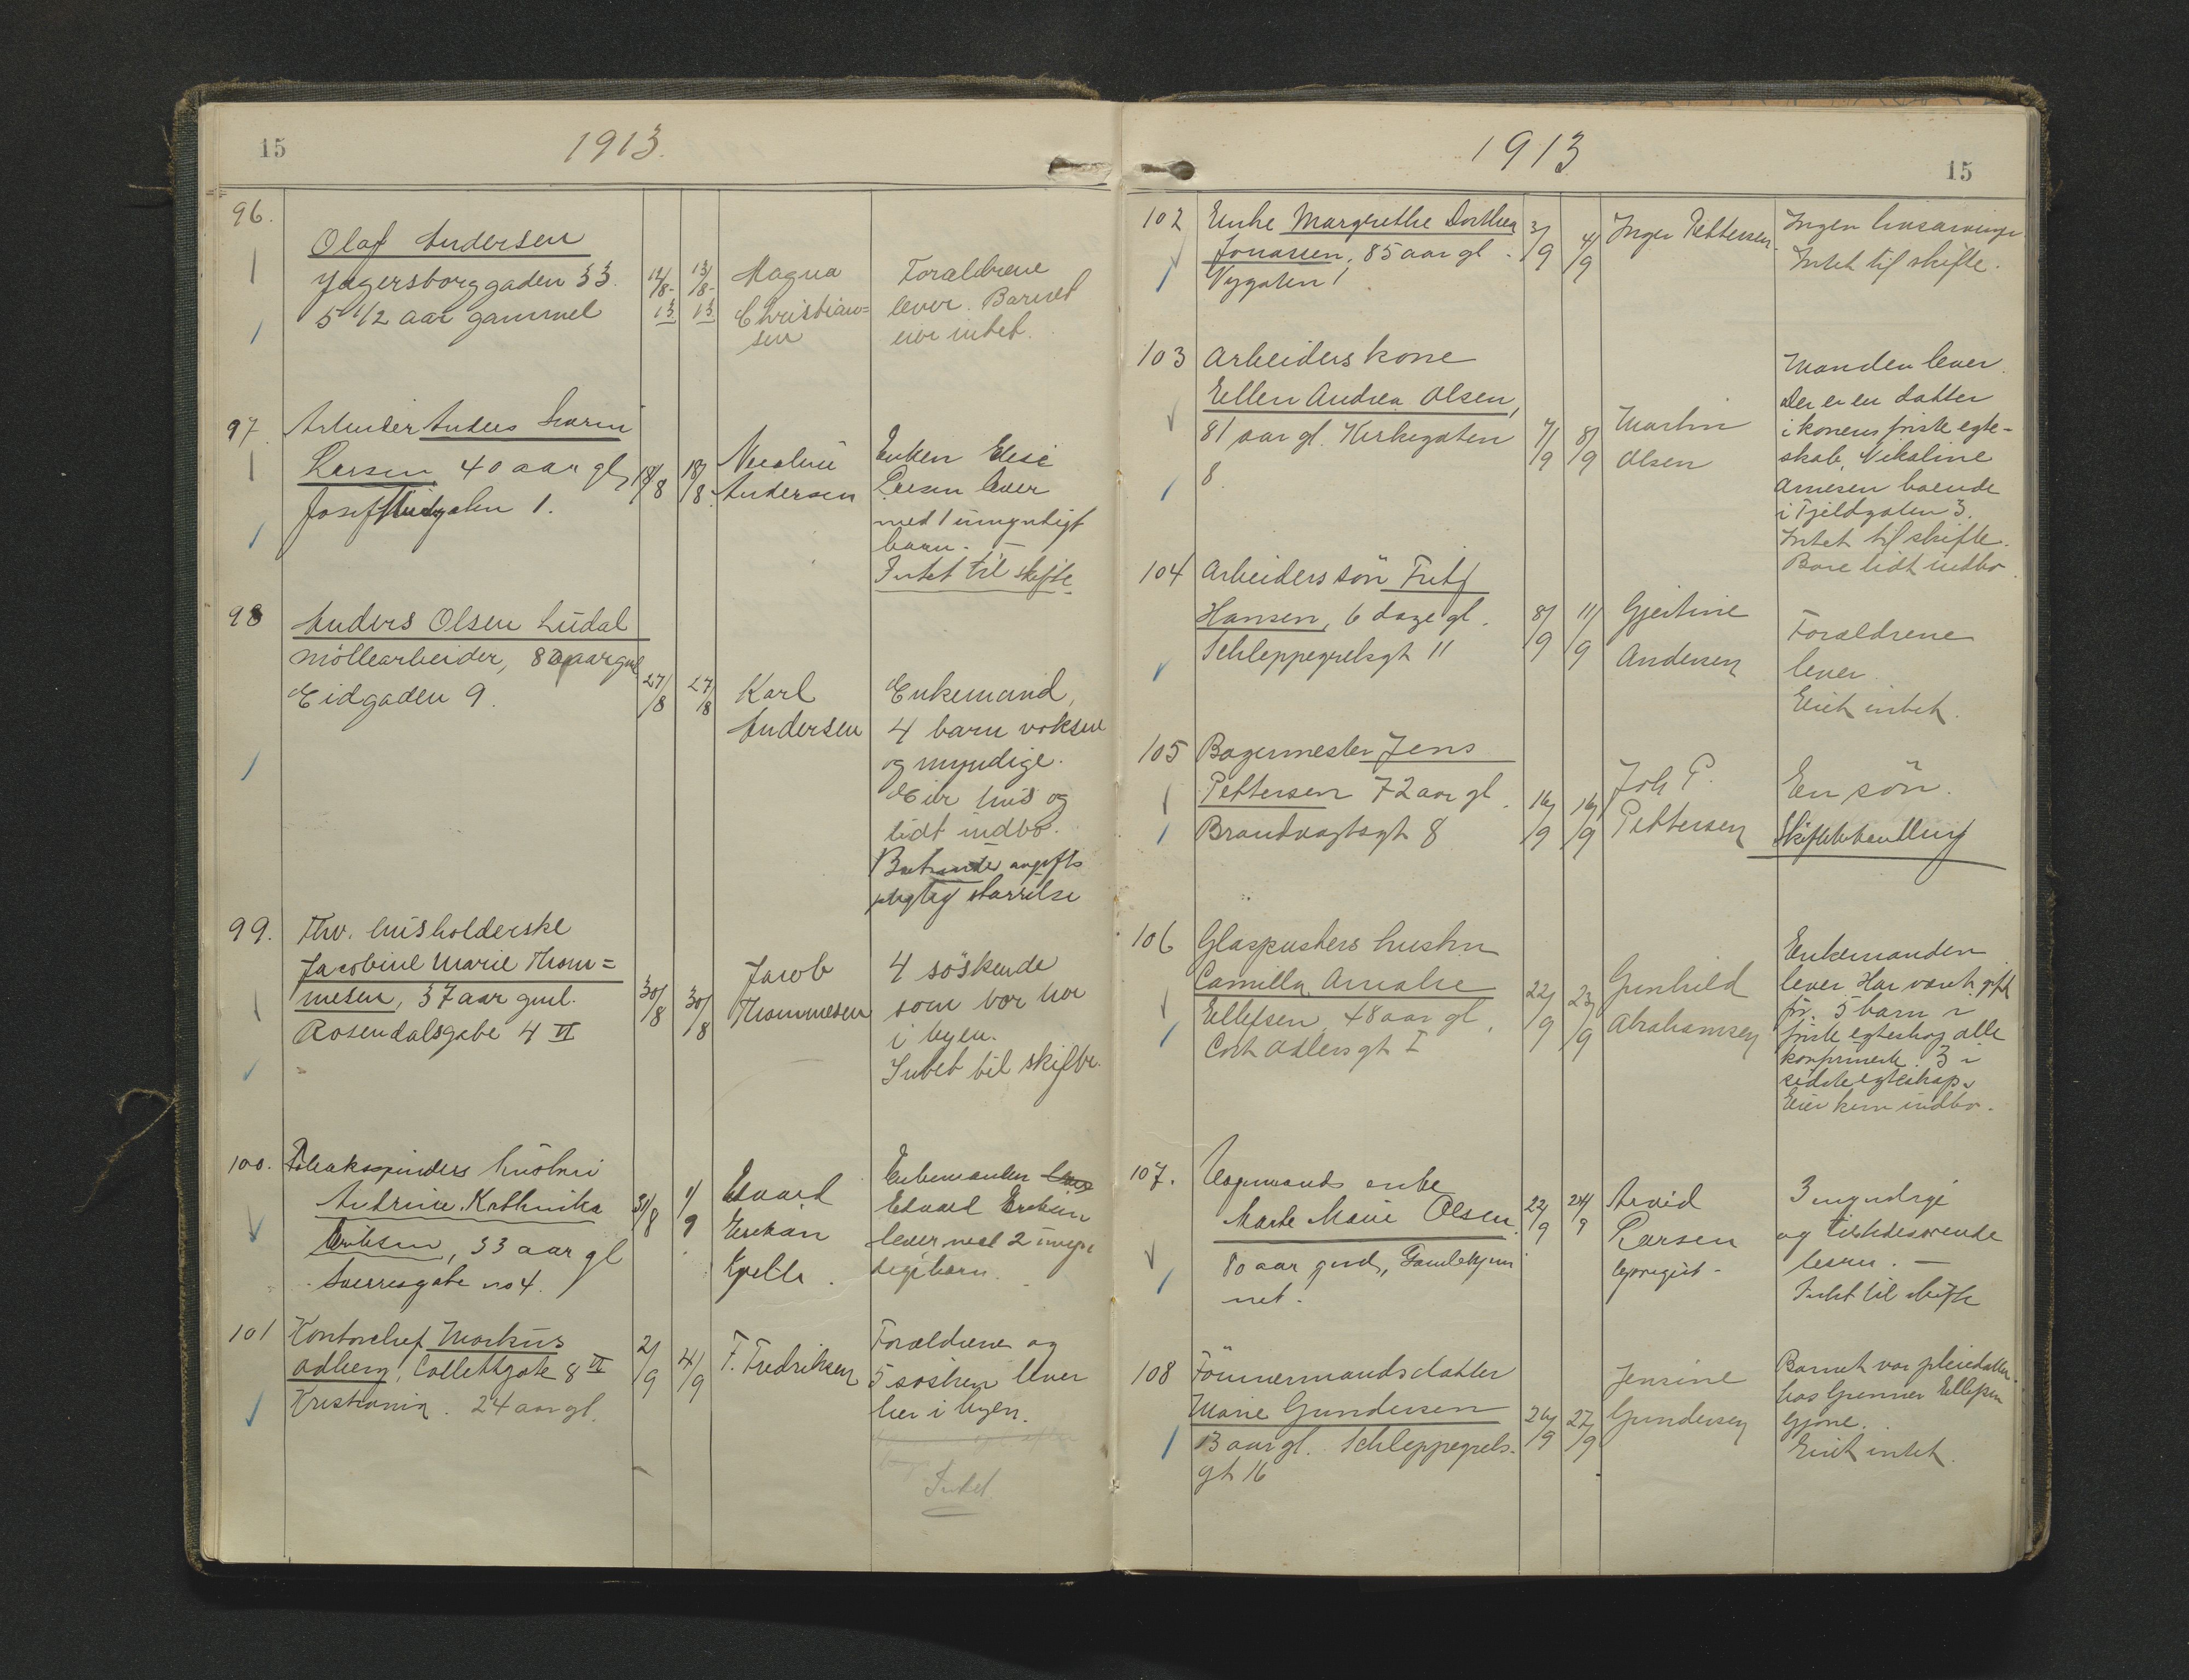 15
1913.
96.
Olaf Andersen
Jægersborggaden 33.
5 1/2 aar gammel
12/8-13
13/8-13
Magna
Christian=
sen
Forældrene
lever. Barnet
eier intet.
97.
Arbeider Anders
Larsen 40 aar gl,
1.
18/8
18/8
Andersen
Enken Elise
Larsen lever
med 1 umyndigt
barn. -
Intet til skifte
98
Anders Olsen Lüdal
möllearbeider, 80 aar gml
Eidgaden 9.
27/8
27/8
Karl
Andersen
Enkemand,
4 barn voksne
og myndige.
Eier hus og
lidt indbo.
99.
Fhv. husholderske
Jacobine Marie Thom=
mesen, 37 aar gml.
Rosendalsgate 4 VI
30/8
30/8
Jacob
Thommesen
4 söskende
som bor her
i byen.
Intet til skifte.
100.
hustru
Andrine Kathinka
Eriksen, 33 aar gl
Sverresgate no 4.
31/8
1/9
Edvard
Eriksen
Enkemanden
Edvard Eriksen
lever med 2 umyn
dige barn.
101
Kontorchef Markus
Adberg, Collettgate 8 VI
Kristiania. 24 aar gl.
2/9
4/9
F. Fredriksen
Forældrene og
5 søsken lever
her i byen.
Intet.
1913
15
102
Enke Margrethe Dorthea
Jonassen, 85 aar gl.
Nygaten 1
3/9
4/9
Inger Pettersen.
Ingen livsarvinger
Intet til skifte.
103
Arbeiders kone
Ellen Andrea Olsen,
81 aar gl. Kirkegaten
8.
7/9
8/9
Martin
Olsen
Manden lever.
Der er en datter
i konens første egte-
skab, Nikoline
Arnesen boende
i Fjeldgaten 3.
Intet til skifte.
Bare lidt indbo.
104
Arbeiders sön Fritz
Hansen, 6 dage gl.
Schleppegrelsgt 11
8/9
11/9
Gjertine
Andersen
Forældrene
lever.
Eiet intet.
105
Bagermester Jens
Pettersen 72 aar gl.
Brandvagtsgt 8
16/9
16/9
Joh P.
Pettersen
En sön.
Skiftebehandling
106
Glaspusters hustru
Camilla Amalie
Ellefsen, 48 aar gl.
Cort Adlers gt I
22/9
23/9
Gunhild
Abrahamsen
Enkemanden
lever. Har været gift
før. 5 barn i
første egteskap alle
konfirmert. 3 i
sidste egteskap.
Eier kun indbo.
107.
enke
Marte Marie Olsen.
80 aar gml,
22/9
24/9
Arvid
Larsen
3 myndige
og tilstedeværende
barn. -
Intet til skifte
108
Tömmermandsdatter
Marie Gundersen
13 aar gl. Schleppegrels-
gt 16
26/9
27/9
Jensine
Gundersen
Barnet var pleiedatter
hos Ellefsen
Gjone.
Eiet intet.